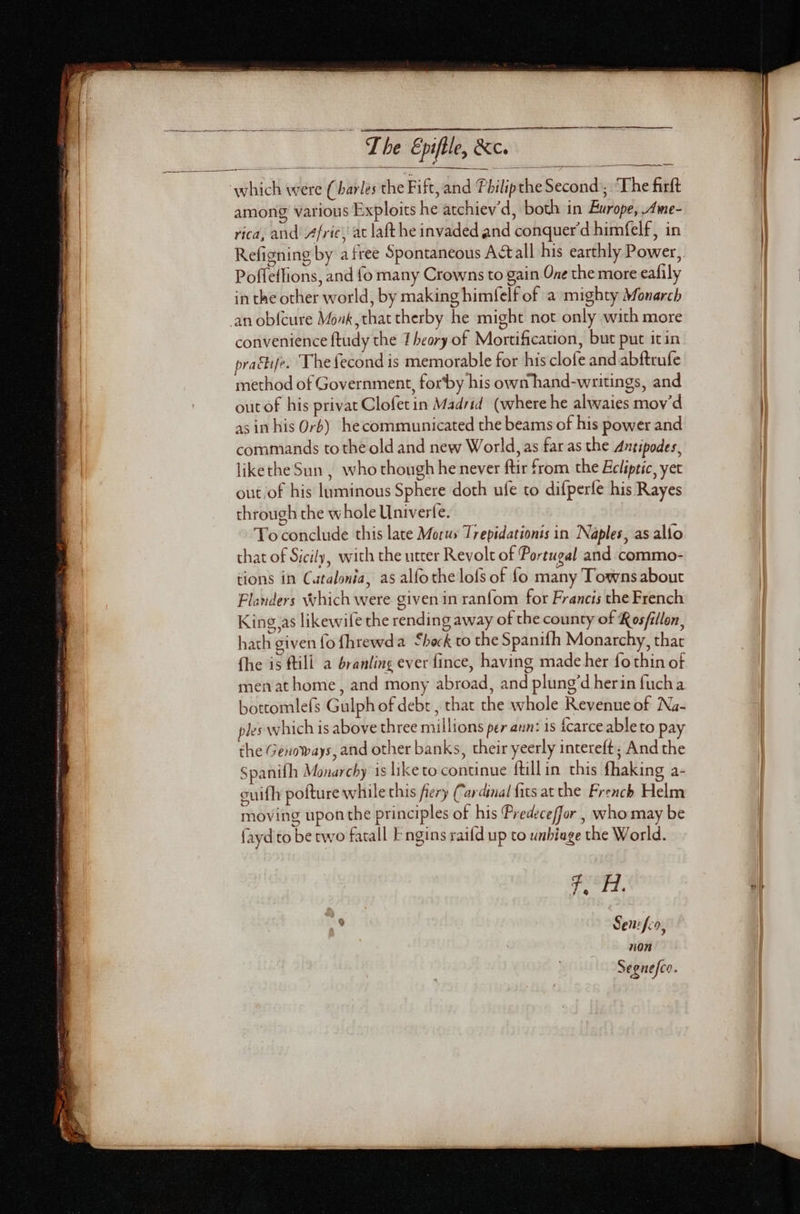 The Epiſtle, &c.
which were Charles the Fift, and Philip the Second; The firſt
among various Exploits he atchiev'd, both in Europe, Ame-
rica, and Afric, at laſt he invaded and conquer'd himſelf, in
Reſigning by a free Spontaneous Act all his earthly Power,
Poſſeſſions, and ſo many Crowns to gain One the more eaſily
in the other world, by making himſelf of a mighty Monarch
an obſcure Monk, that therby he might not only with more
convenience ſtudy the Theory of Mortification, but put it in
practiſe. The ſecond is memorable for his cloſe and abſtruſe
method of Government, for by his own hand-writings, and
out of his privat Cloſet in Madrid (where he alwaies mov'd
as in his Orb) he communicated the beams of his power and
commands to the old and new World, as far as the Antipodes,
like the Sun, who though he never ſtir from the Ecliptic, yet
out of his luminous Sphere doth uſe to diſperſe his Rayes
through the whole Univerſe.
To conclude this late Motus Trepidationis in Naples, as alſo
that of Sicily, with the utter Revolt of Portugal and commo-
tions in Catalonia, as alſo the loſs of ſo many Towns about
Flanders which were given in ranſom for Francis the French
King, as likewiſe the rending away of the county of Rosſillon,
hath given ſo ſhrewd a Shock to the Spaniſh Monarchy, that
ſhe is ſtill a branling ever ſince, having made her ſo thin of
men at home, and mony abroad, and plung'd her in ſuch a
bottomleſs Gulph of debt, that the whole Revenue of Na-
ples which is above three millions per ann: is ſcarce able to pay
the Genoways, and other banks, their yeerly intereſt; And the
Spaniſh Monarchy is like to continue ſtill in this ſhaking a-
guiſh poſture while this fiery Cardinal ſits at the French Helm
moving upon the principles of his Predeceſſor, who may be
ſayd to be two fatall Engins raiſd up to unhinge the World.
F. H.
Seneſco,
non
Segneſco.